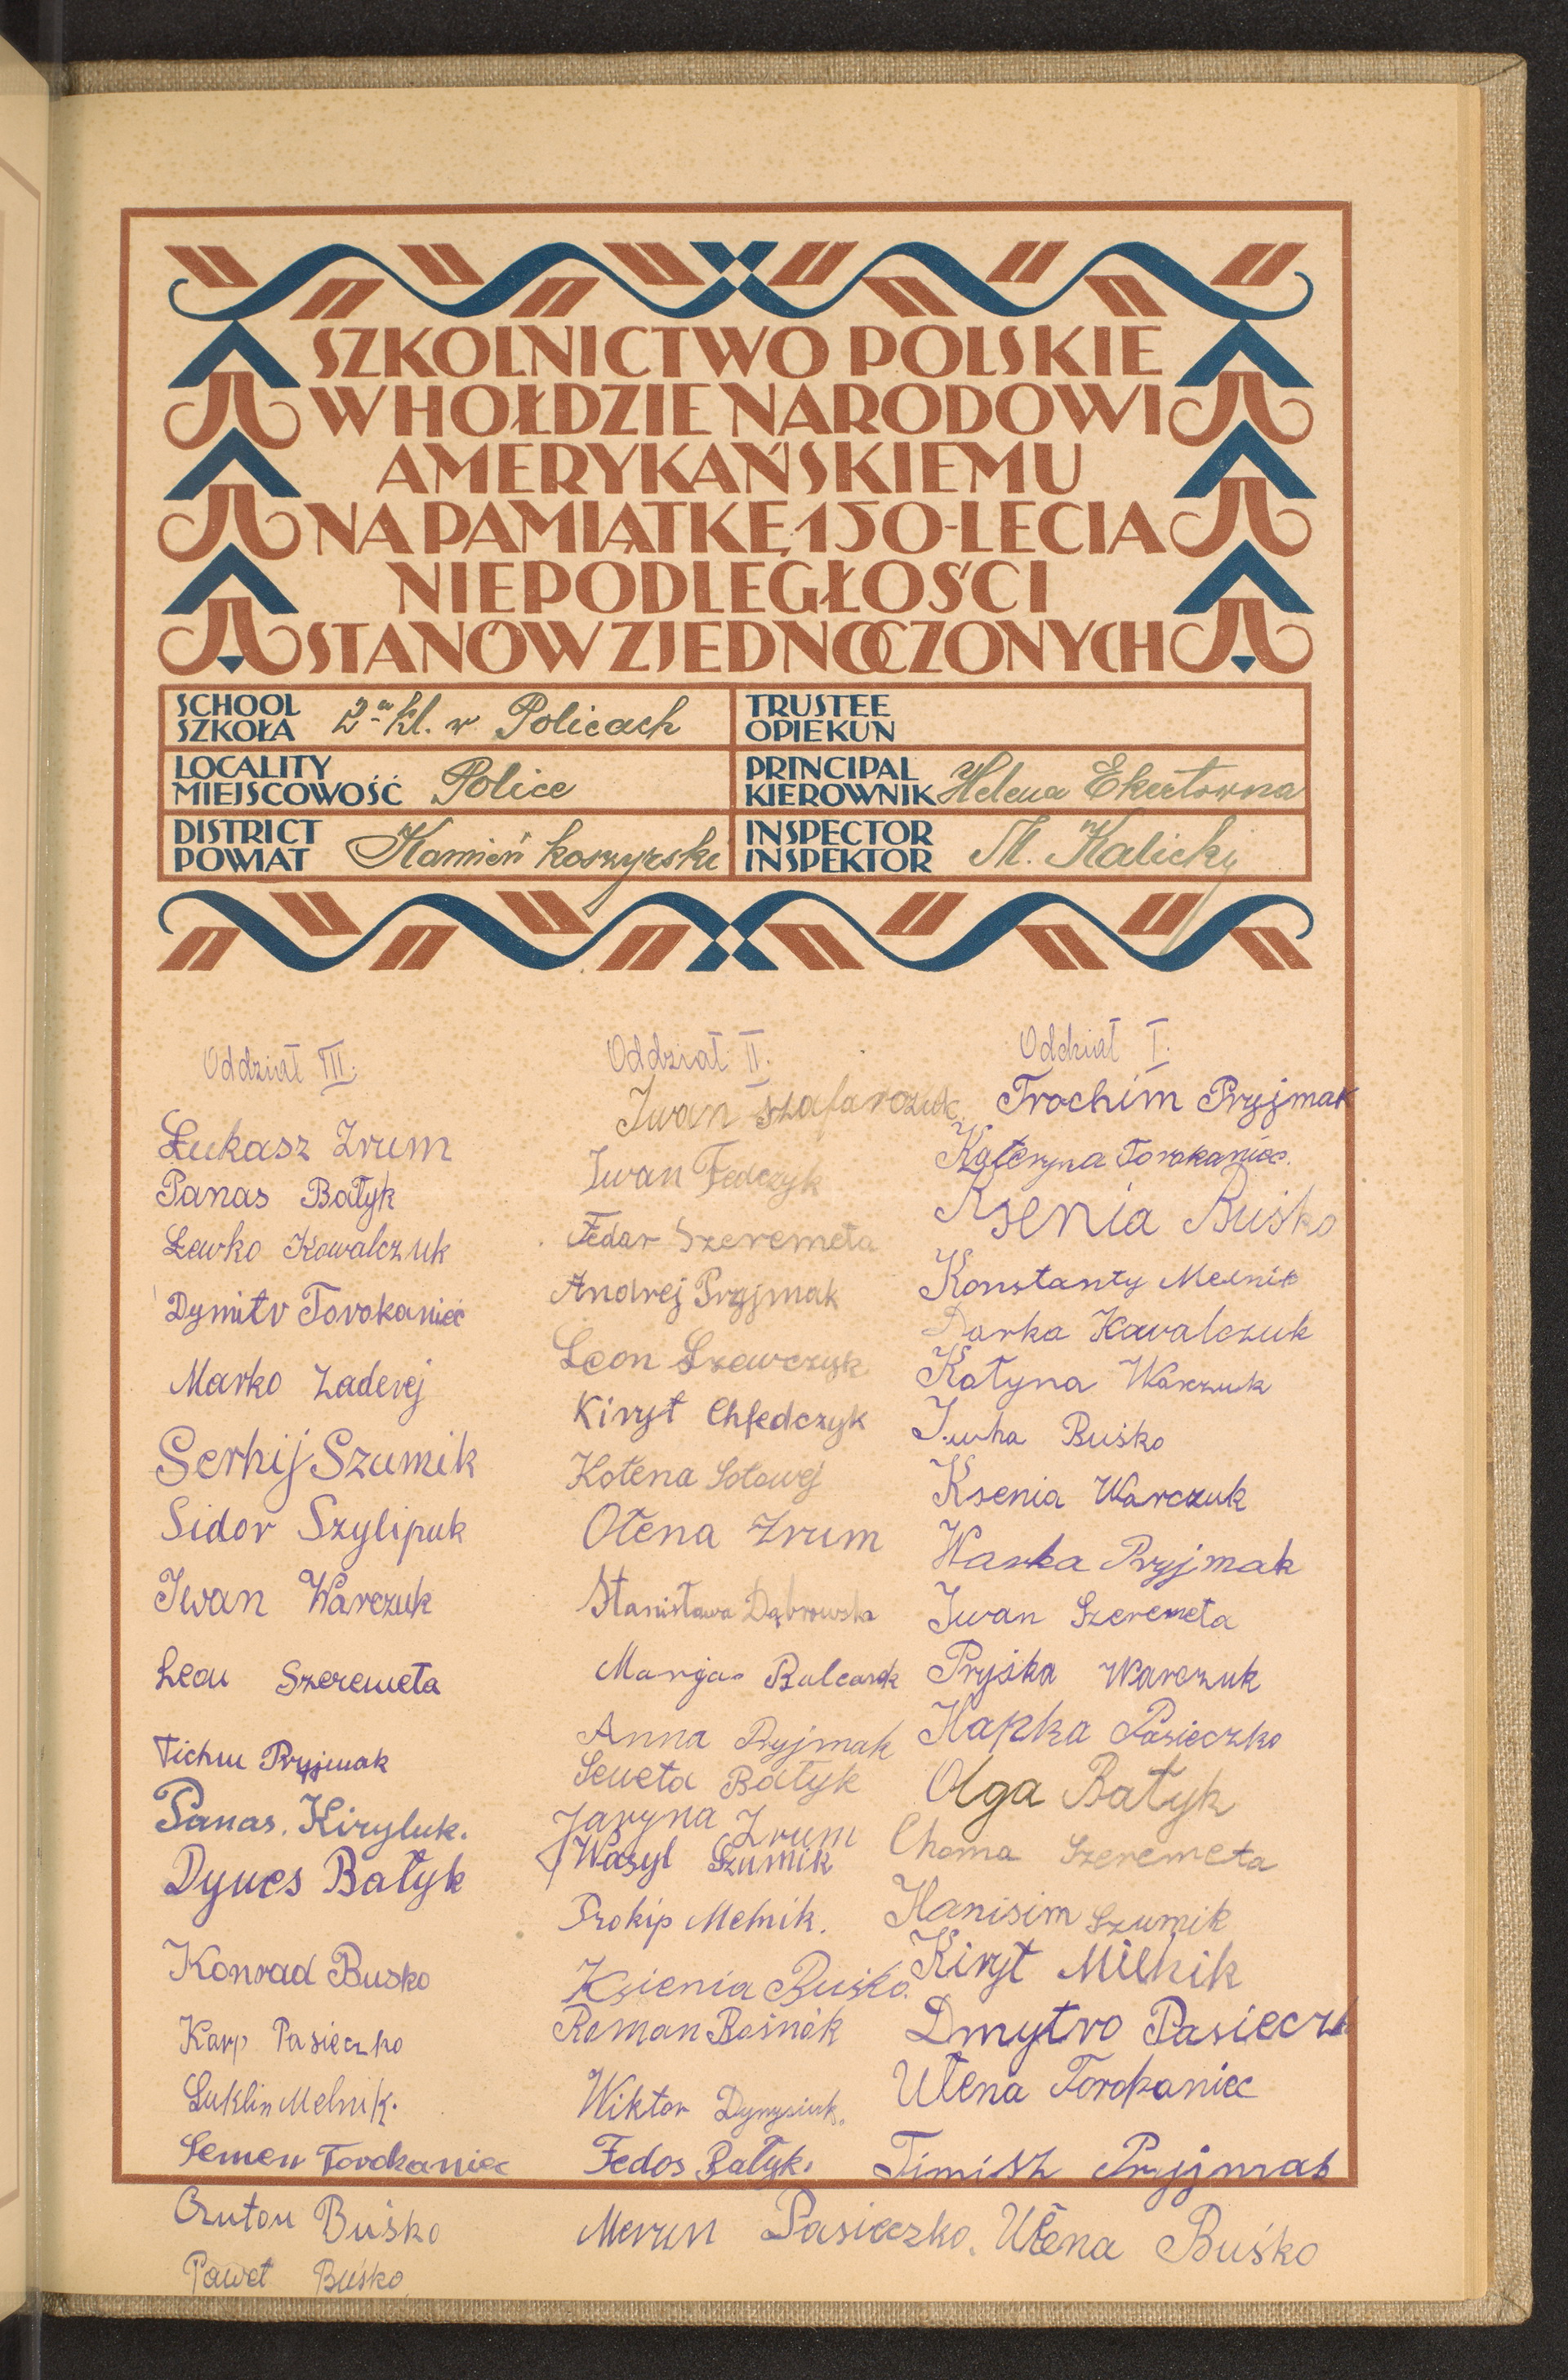 SZKOLNICTWO POLSKIE
W HOŁDZIE NARODOWI
AMERYKAŃSKIEMU
NA PAMIĄTKĘ 150-LECIA
NIEPODLEGŁOŚCI
STANÓW ZJEDNOCZONYCH
SCHOOL
SZKOŁA 2-a kl. w Policach
TRUSTEE
OPIEKUN
LOCALITY
MIEJSCOWOŚĆ Police
PRINCIPAL
KIEROWNIK Helena Ekertowna
DISTRICT
POWIAT Kamień koszyrski
INSPECTOR
INSPEKTOR M. Kalicki
Oddział III.
Łukasz Zrum
Panas Bałyk
Lewko Kowalczuk
Dymitr Torokaniec
Marko Zaderej
Serhij Szumik
Sidor Szylipuk
Iwan Warczuk
Leon Szeremeta
Tichon Pryjmak
Panas. Kiryluk.
Dynes Bałyk
Konrad Busko
Karp Pasieczko
Luklin Melnik.
Semen Torokaniec
Anton Buśko
Paweł Buśko
Oddział II.
Iwan Szafarczuk
Iwan Fedczyk
Fedar Szeremeta
Andrej Pryjmak
Leon Szewczyk
Kirył Chfedczyk
Hołena Sołowej
Ołena Zrum
Stanisława Dąbrowska
Marjan
Anna Pryjmak
Bałyk
Jaryna Zrum
Wasyl Szumik
Prokip Melnik.
Ksienia Buśko.
Roman Bośnak
Wiktor
Fedos Bałyk.
Pasieczko.
Oddział I.
Trochim Pryjmak
Kateryna Torokaniec.
Ksenia Buśko
Konstanty Melnik
Darka Kawalczuk
Katyna Warczuk
Juha Buśko
Ksenia Warczuk
Warka Pryjmak
Iwan Szeremeta
Pryśka Warczuk
Hapka Pasieczko
Olga Bałyk
Choma Szeremeta
Hanisim Szumik
Kirył Milnik
Dmytro Pasieczk
Ułena Torokaniec
Timisz Pryjmak
Ułena Buśko